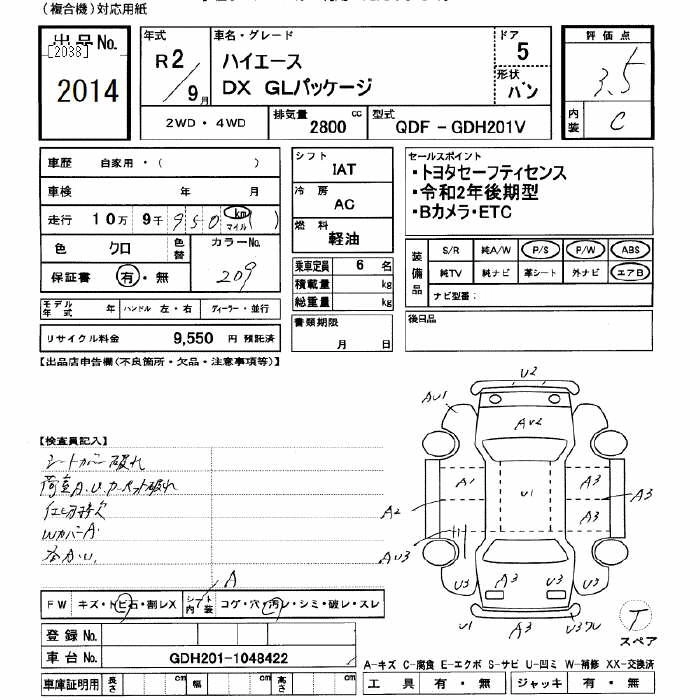 (複合機)対応用紙
出品No.
[2038]
2014
年式
R2/9月
車名・グレード
ハイエース
DX GLパッケージ
ドア
5
形状
バン
評価点
3.5
内装
C
2WD・4WD
排気量
2800 cc
型式
QDF-GDH201V
車歴 自家用・( )
車検 年 月
走行 10万 9千 950 (km マイル)
色 クロ 色替 カラーNo.
209
保証書 有・無
モデル年式 年 ハンドル 左・右 ディーラー・並行
リサイクル料金 9,550 円 預託済
シフト
IAT
冷房
AC
燃料
軽油
乗車定員 6 名
積載量 kg
総重量 kg
書類期限
月 日
セールスポイント
・トヨタセーフティセンス
・令和2年後期型
・Bカメラ・ETC
装備品
S/R 純A/W P/S P/W ABS
純TV 純ナビ 革シート 外ナビ エアB
ナビ型番:
後日品
【出品店申告欄(不良箇所・欠品・注意事項等)】
【検査員記入】
シートカバー破れ
荷室A.U.カーペット破れ
WカバーA
FW キズ・トビ石・割レX
シート内装 コゲ・穴・汚レ・シミ・破レ・スレ
A
登録No.
車台No. GDH201-1048422
車庫証明用 長さ cm 幅 cm 高さ cm
U2
AU1
AU2
A1
U1
A3
A3
A2
A3
AU3
U3
A3
U3
U3
U1
A3
T
スペア
A-キズ C-腐食 E-エクボ S-サビ U-凹ミ W-補修 XX-交換済
工具 有・無 ジャッキ 有・無